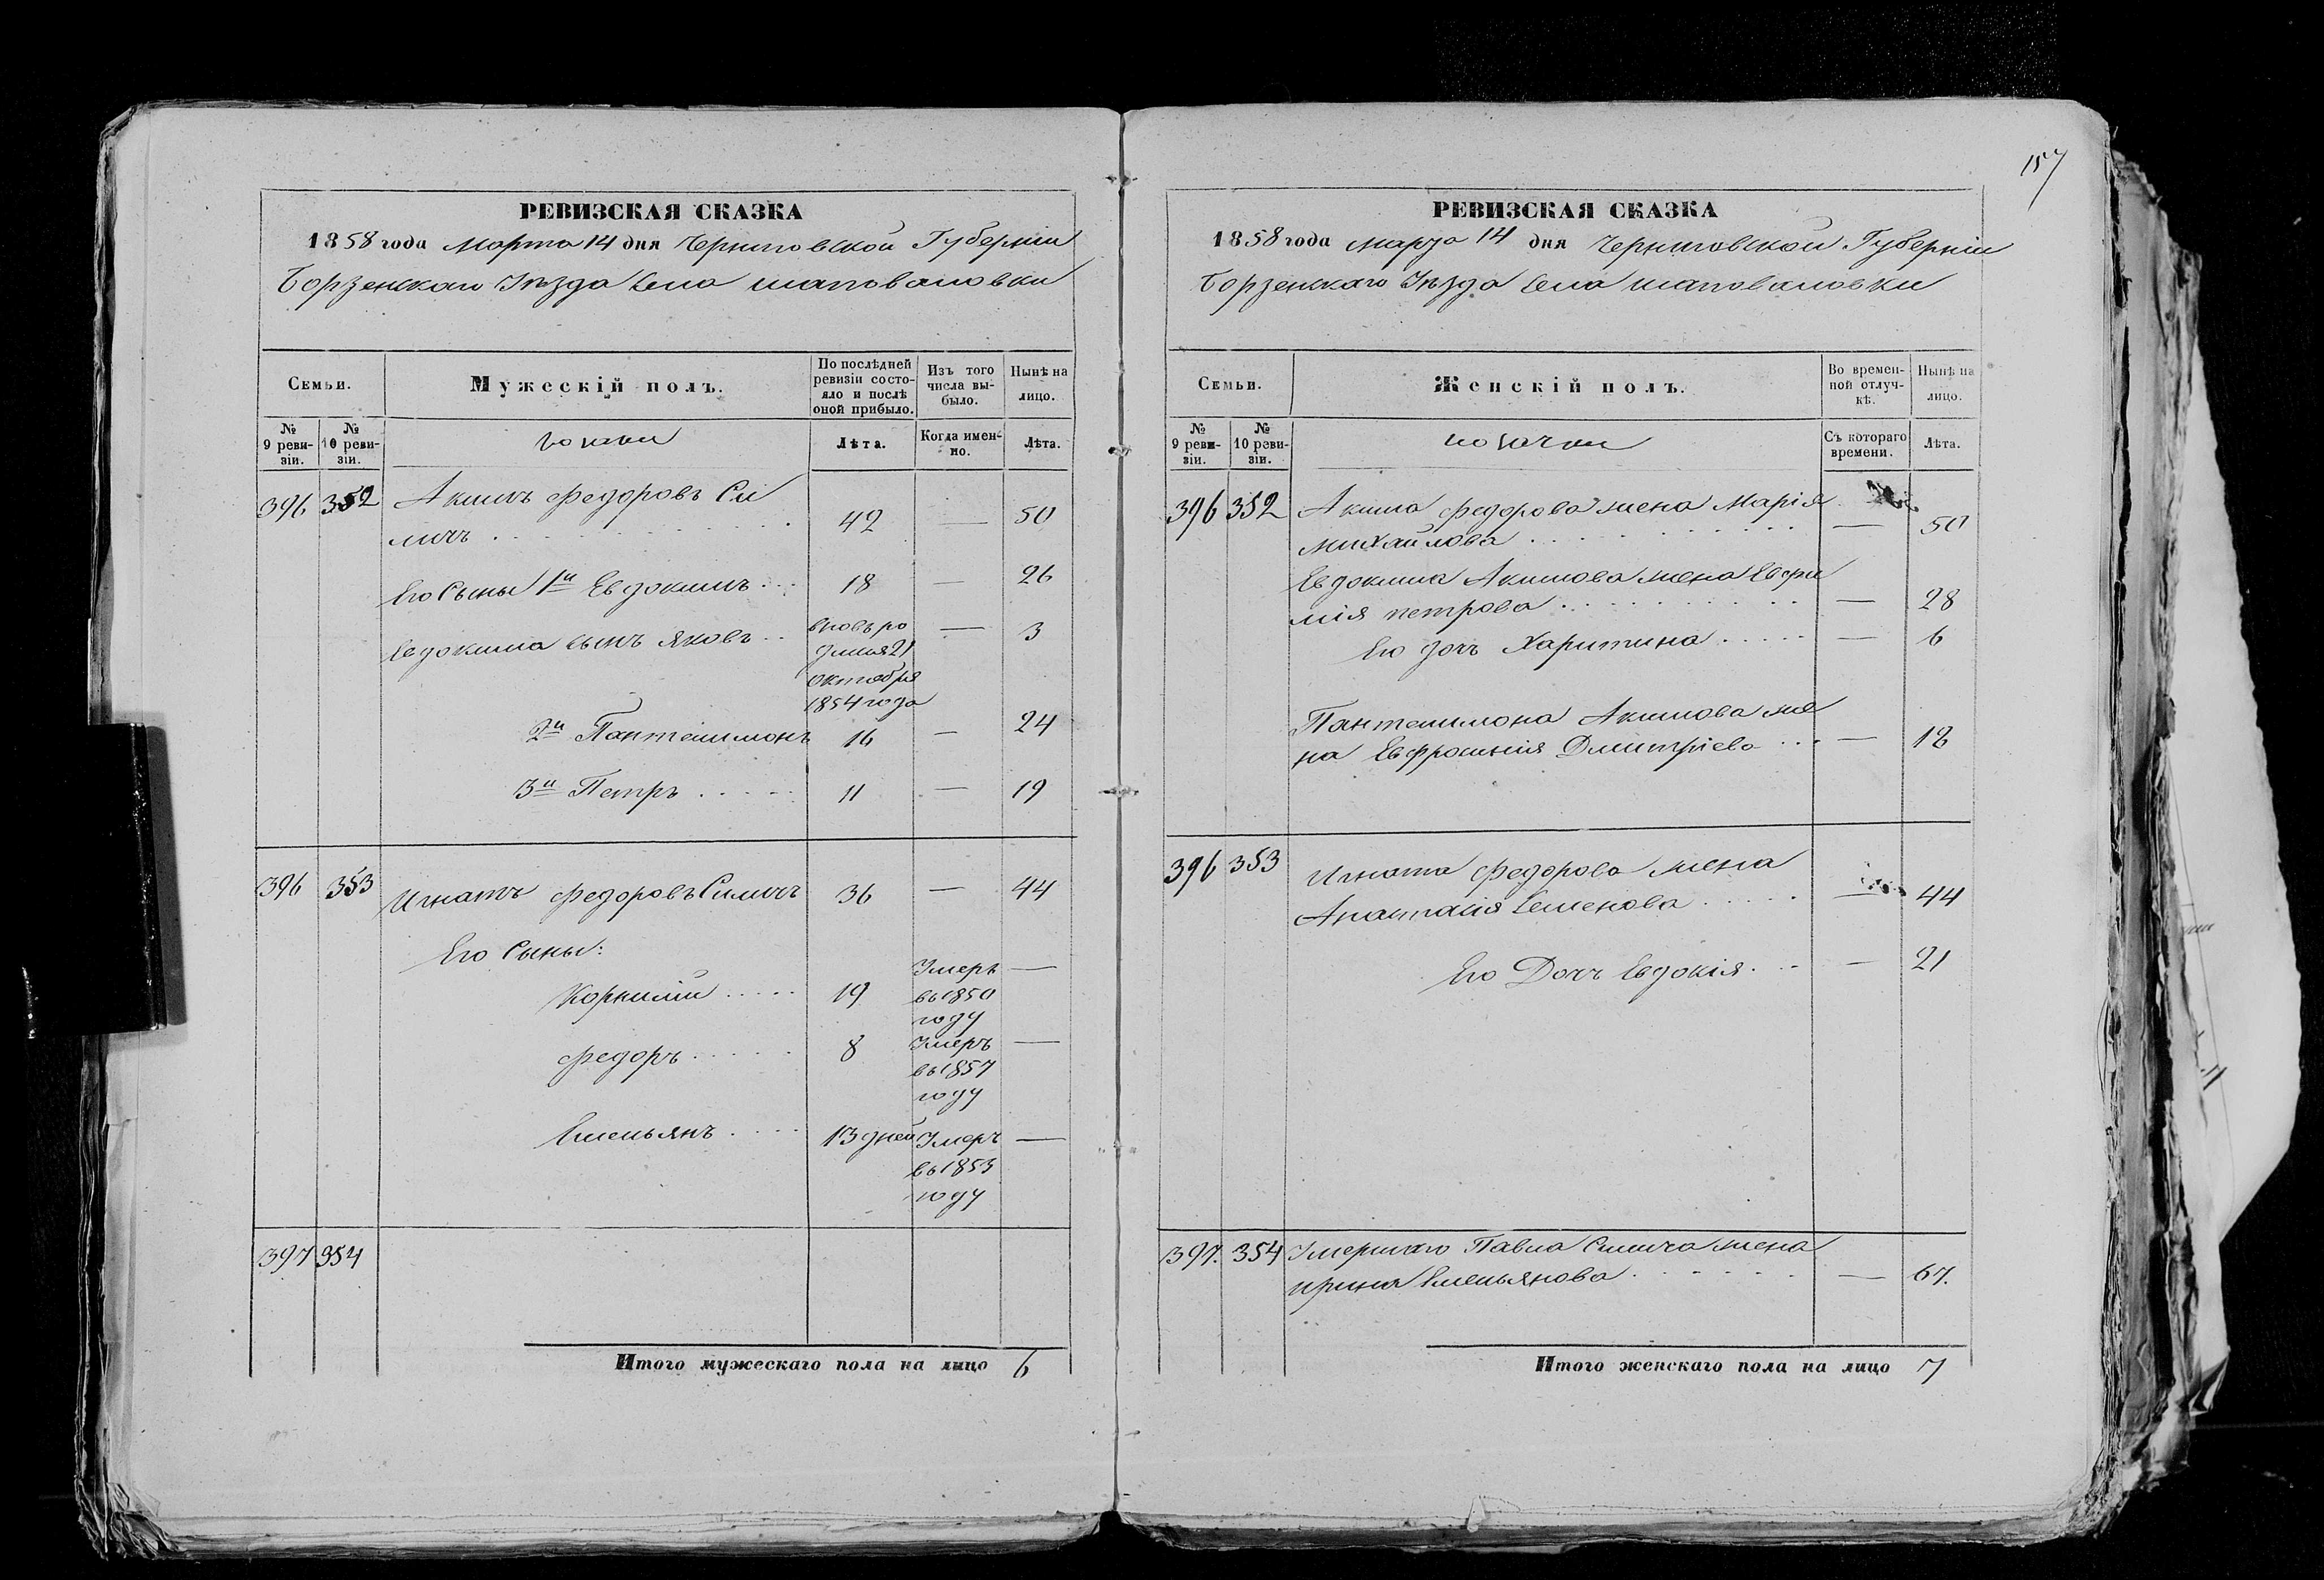 157
РЕВИЗСКАЯ СКАЗКА
1858 года Марта 14 дня Черниговской Губерніи
Борзенскаго Уѣзда Села Шаповаловки
Семьи.
Мужескій полъ.
По послѣдней ревизіи состо-
яло и послѣ
оной прибыло.
Изъ того
числа вы-
было.
Нынѣ на
лицо.
№
9 реви-
зіи.
№
10 реви-
зіи.
Лѣта.
Когда имен-
но.
Лѣта.
396 352 Акимъ Федоровъ Си
мичъ 42 — 50
Его Сыны 1й Евдокимъ 18 — 26
Евдокима сынъ Яковъ вновь ро — 3
21
октября
1854 года
2й Пантелимонъ 16 — 24
3й Петръ 11 — 19
396 353 Игнатъ Федоровъ Симичъ 36 — 44
Его Сыны:
Корнилій 19 Умеръ —
въ 1850
году
Федоръ 8 Умеръ —
въ 1857
году
Емельянъ 13 дней Умеръ —
въ 1853
году
397 354
Итого мужескаго пола на лицо 6
РЕВИЗСКАЯ СКАЗКА
1858 года Марта 14 дня Черниговской Губерніи
Борзенскаго Уѣзда Села Шаповаловки
Семьи.
Женскій полъ.
Во времен-
ной отлуч-
кѣ.
Нынѣ на
лицо.
№
9 реви-
зіи.
№
10 реви-
зіи.
Съ котораго
времени.
Лѣта.
396 352 Акима Федорова жена Марія
Михайлова — 50
Евдокима Акимова жена Евфи
мія Петрова — 28
Его дочь Харитина — 6
Пантелимона Акимова же
на Евфросинія Дмитріева — 18
396 353 Игната Федорова жена
Анастасія Семенова — 44
Его Дочь Евдокія — 21
397. 354 Умершаго Павла Симича жена
Ирина Емельянова — 67.
Итого женскаго пола на лицо 7